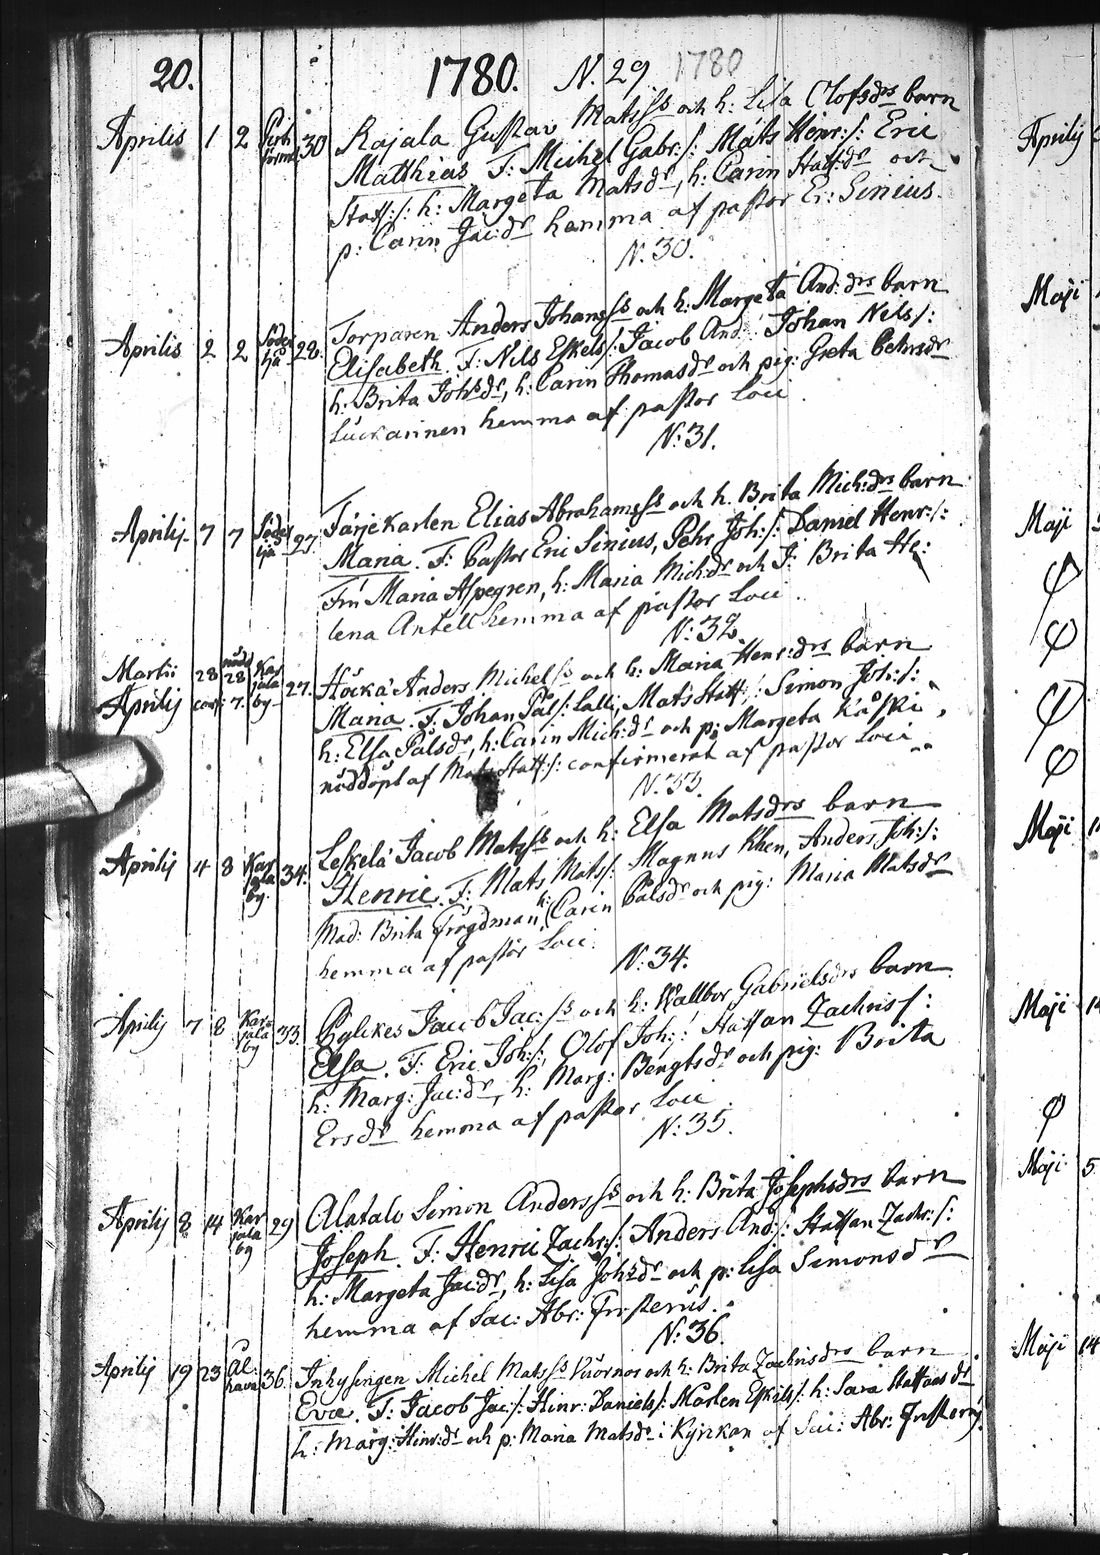 20. 1780. N. 29 1780
Aprilis 1 2 30 Rajala Gustav Matsss och h: Lisa Olofsdrs barn
Matthias F: Michel Gabr:/: Mats Henr:/: Eric
Staff:/: h: Margeta Matsdr, h: Carin Staff:dr och
p: Carin Jac:dr hemma af pastor Er: Sinius.
N. 30.
Aprilis 2 2 28. Torparen Anders Johansss och h: Margeta And:drs barn
Elisabeth. F: Nils Eskels/: Jacob And:/: Johan Nels/:
h: Brita Johsdr, h: Carin Thomasdr och pig: Greta Pehrsdr
hemma af pastor Loci.
N: 31.
Aprilis 7 7 27 Färjekarlen Elias Abrahamsss och h. Brita Mich:drs barn
Maria. F: Pastor Eric Sinius, Pehr Joh:/: Daniel Henr:/:
Fru Maria Aspegren, h: Maria Mich:dr och J: Brita He:
lena Antell hemma af pastor Loci.
N: 32.
Martii 28 nöd 28 Kar 27. Höckä Anders Michelss och h: Maria Henr:drs barn
Aprilij conf: 7. jala by Maria. F. Johan Påls/: Lalli, Mats Staff:/: Simon Joh:/:
h: Elsa Pålsdr, h: Carin Mich:dr och p: Margeta
nöddöpt af Mats Staff:/: confirmerat af pastor Loci
N. 33.
Aprilij 4 8 Kar 34. Leskelä Jacob Matsss och h: Elsa Matsdrs barn
jala by Henric. F: Mats Mats/: Magnus Khen, Anders Joh:/:
Mad: Brita Frögdman, h: Carin Pålsdr och pig: Maria Matsdr
hemma af pastor Loci.
N: 34.
Aprilij 7 8 Kar 33. Jacob Jac:ss och h: Wallbor Gabrielsdrs barn
jala by Elsa. F: Eric Joh:/: Olof Joh:/: Staffan Zachris/:
h: Marg: Jac:dr, h: Marg: Bengtsdr och pig: Brita
Ersdr hemma af pastor Loci
N: 35.
Aprilij 8 14 Kar 29 Alatalo Simon Andersss och h: Brita Josephsdrs barn
jala by Joseph. F: Henric Zachr:/: Anders And:/: Staffan Zachr:/:
h: Margeta Jac:dr, h: Lisa Johsdr och p: Lisa Simonsdr
hemma af Sac: Abr: Frosterus.
N: 36.
Aprilij 19 23 36. Inhysingen Michel Matsss och h: Brita Zachrisdrs barn
Eva. F: Jacob Jac:/: Hinr: Daniels/: Mårten Eskils/: h: Sara Staffansdr
h: Marg: Hinr:dr och p: Maria Matsdr i Kyrkan af Sac: Abr: Frosterus.
Aprilij
Maji
Maji
Maji
Maji
Maji
Maji 14